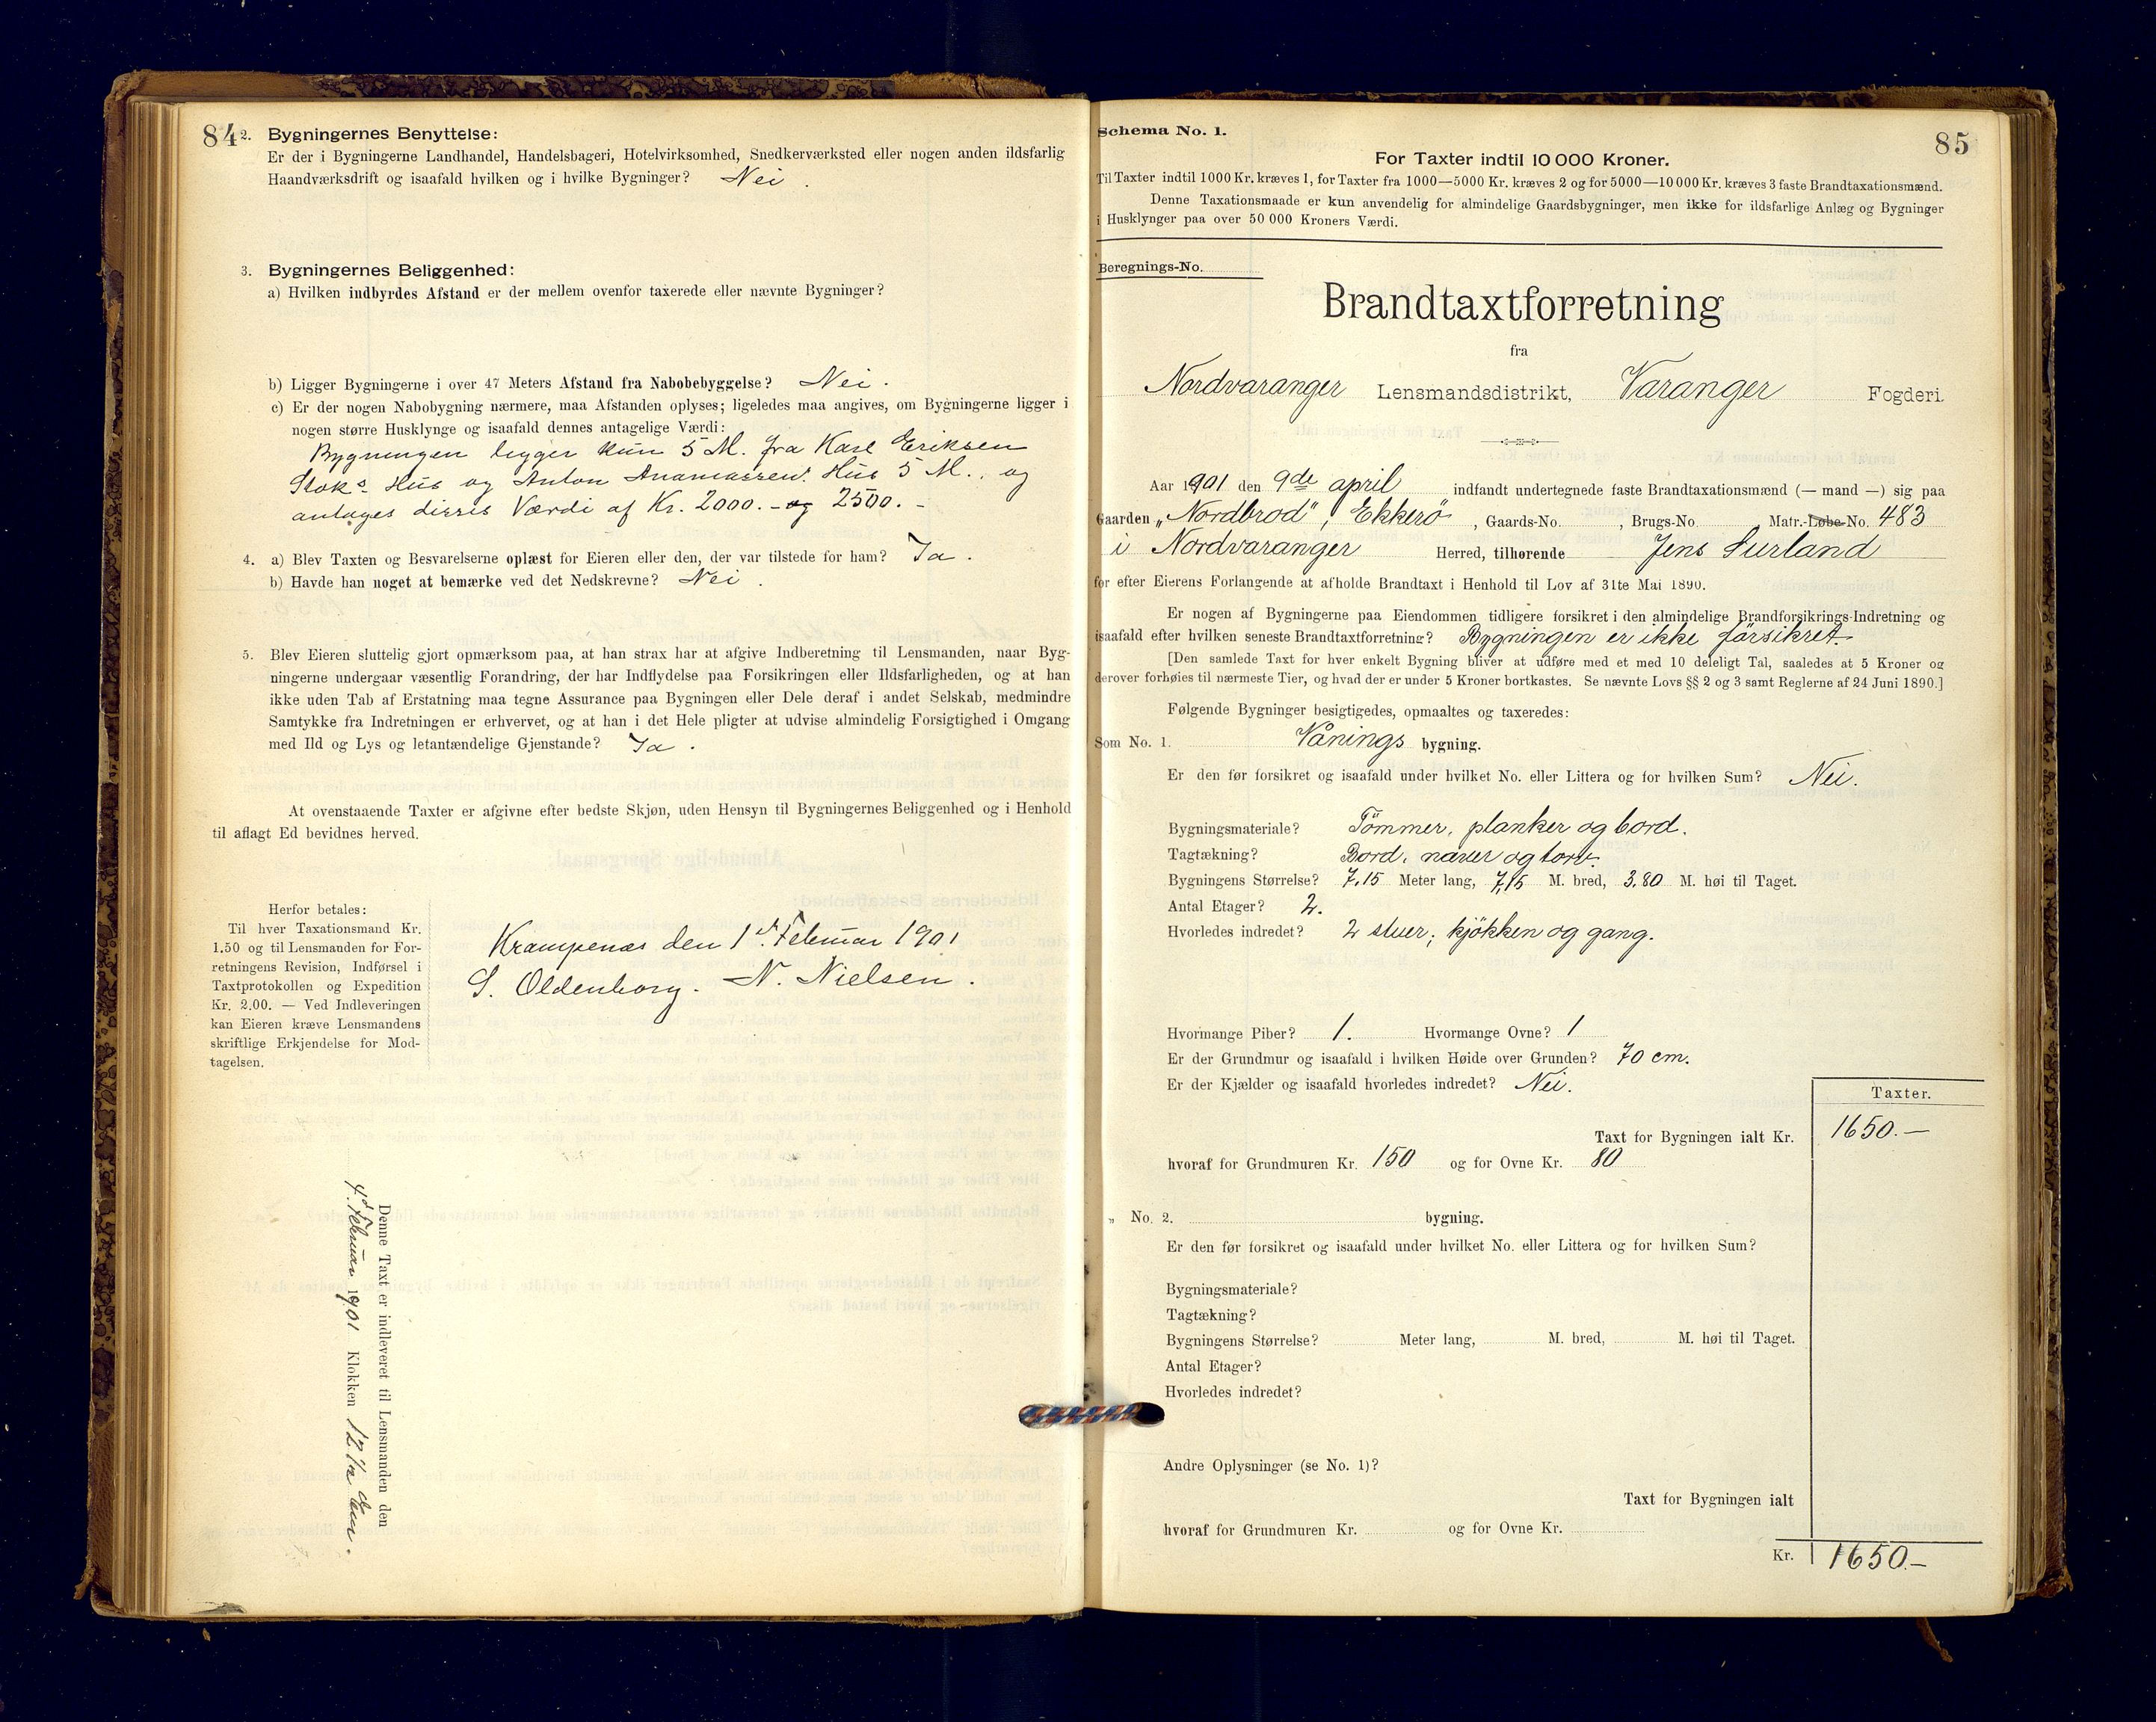 84
2. Bygningernes Benyttelse:
Er der i Bygningerne Landhandel, Handelsbageri, Hotelvirksomhed, Snedkerværksted eller nogen anden ildsfarlig
Haandværksdrift og isaafald hvilken og i hvilke Bygninger? Nei.
3. Bygningernes Beliggenhed:
a) Hvilken indbyrdes Afstand er der mellem ovenfor taxerede eller nævnte Bygninger?
b) Ligger Bygningerne i over 47 Meters Afstand fra Nabobebyggelse? Nei.
c) Er der nogen Nabobygning nærmere, maa Afstanden oplyses; ligeledes maa angives, om Bygningerne ligger i
nogen større Husklynge og isaafald dennes antagelige Værdi:
Bygningen ligger kun 5 M. fra Karl Eriksen
Hus og Anton Hus 5 M., og
antages disses Værdi af Kr. 2000.- og 2500.-
4. a) Blev Taxten og Besvarelserne oplæst for Eieren eller den, der var tilstede for ham? Ja.
b) Havde han noget at bemærke ved det Nedskrevne? Nei.
5. Blev Eieren sluttelig gjort opmærksom paa, at han strax har at afgive Indberetning til Lensmanden, naar Byg-
ningerne undergaar væsentlig Forandring, der har Indflydelse paa Forsikringen eller Ildsfarligheden, og at han
ikke uden Tab af Erstatning maa tegne Assurance paa Bygningen eller Dele deraf i andet Selskab, medmindre
Samtykke fra Indretningen er erhvervet, og at han i det Hele pligter at udvise almindelig Forsigtighed i Omgang
med Ild og Lys og letantændelige Gjenstande? Ja.
At ovenstaaende Taxter er afgivne efter bedste Skjøn, uden Hensyn til Bygningernes Beliggenhed og i Henhold
til aflagt Ed bevidnes herved.
Herfor betales:
Til hver Taxationsmand Kr.
1.50 og til Lensmanden for For-
retningens Revision, Indførsel i
Taxtprotokollen og Expedition
Kr. 2.00. — Ved Indleveringen
kan Eieren kræve Lensmandens
skriftlige Erkjendelse for Mod-
tagelsen.
Krampenæs den 1st Februar 1901
S. Oldenborg. N. Nielsen.
Denne Taxt er indleveret til Lensmanden den
4d Februar 1901 Klokken 12 1/2 Em.
Schema No. 1.
85
For Taxter indtil 10 000 Kroner.
Til Taxter indtil 1000 Kr. kræves 1, for Taxter fra 1000—5000 Kr. kræves 2 og for 5000—10 000 Kr. kræves 3 faste Brandtaxationsmænd.
Denne Taxationsmaade er kun anvendelig for almindelige Gaardsbygninger, men ikke for ildsfarlige Anlæg og Bygninger
i Husklynger paa over 50 000 Kroners Værdi.
Beregnings-No.
Brandtaxtforretning
fra
Nordvaranger Lensmandsdistrikt, Varanger Fogderi.
Aar 1901 den 9de april indfandt undertegnede faste Brandtaxationsmænd (— mand —) sig paa
Gaarden „Nordbrod", Ekkerö, Gaards-No. , Brugs-No. Matr.-Løbe-No. 483
i Nordvaranger Herred, tilhørende Jens Surland
for efter Eierens Forlangende at afholde Brandtaxt i Henhold til Lov af 31te Mai 1890.
Er nogen af Bygningerne paa Eiendommen tidligere forsikret i den almindelige Brandforsikrings-Indretning og
isaafald efter hvilken seneste Brandtaxtforretning? Bygningen er ikke forsikret
[Den samlede Taxt for hver enkelt Bygning bliver at udføre med et med 10 deleligt Tal, saaledes at 5 Kroner og
derover forhøies til nærmeste Tier, og hvad der er under 5 Kroner bortkastes. Se nævnte Lovs §§ 2 og 3 samt Reglerne af 24 Juni 1890.]
Følgende Bygninger besigtigedes, opmaaltes og taxeredes:
Som No. 1. Vånings bygning.
Er den før forsikret og isaafald under hvilket No. eller Littera og for hvilken Sum? Nei.
Bygningsmateriale? Tömmer, planker og bord.
Tagtækning? Bord, næver og torv.
Bygningens Størrelse? 7,15 Meter lang, 7,15 M. bred, 3,80 M. høi til Taget.
Antal Etager? 2.
Hvorledes indredet? 2 stuer, kjökken og gang.
Hvormange Piber? 1. Hvormange Ovne? 1
Er der Grundmur og isaafald i hvilken Høide over Grunden? 70 cm.
Er der Kjælder og isaafald hvorledes indredet? Nei.
Taxter.
Taxt for Bygningen ialt Kr. 1650.—
hvoraf for Grundmuren Kr. 150 og for Ovne Kr. 80
„ No. 2. bygning.
Er den før forsikret og isaafald under hvilket No. eller Littera og for hvilken Sum?
Bygningsmateriale?
Tagtækning?
Bygningens Størrelse? Meter lang, M. bred, M. høi til Taget.
Antal Etager?
Hvorledes indredet?
Andre Oplysninger (se No. 1)?
Taxt for Bygningen ialt
hvoraf for Grundmuren Kr. og for Ovne Kr.
Kr. 1650.—